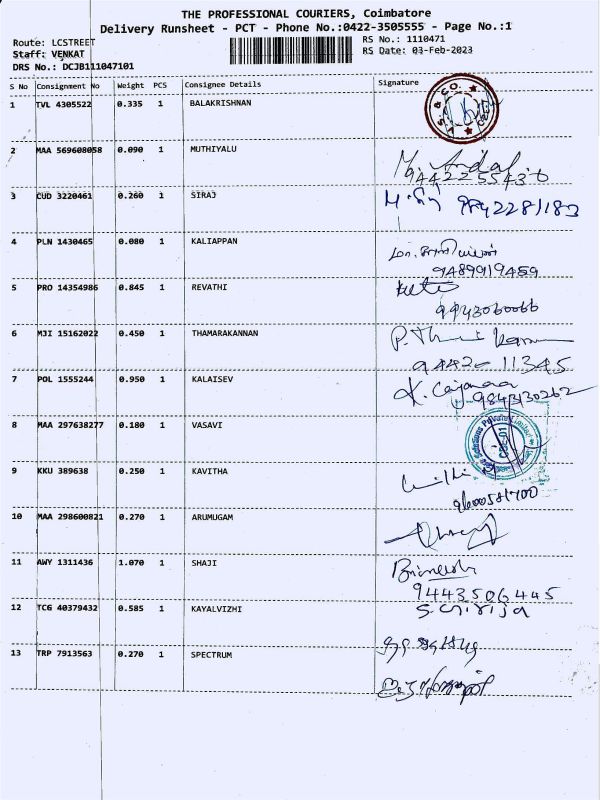 THE PROFESSIONAL COURIERS, Coimbatore
Delivery Runsheet - PCT - Phone No.:0422-3505555 - Page No.:1
Route: LCSTREET
Staff: VENKAT
DRS No.: DCJB111047101
RS No.: 1110471
RS Date: 03-Feb-2023
S No Consignment No Weight PCS Consignee Details Signature
1 TVL 4305522 0.335 1 BALAKRISHNAN
2 MAA 569608058 0.090 1 MUTHIYALU
9442255430
3 CUD 3220461 0.260 1 SIRAJ
9842281183
4 PLN 1430465 0.080 1 KALIAPPAN
9489919459
5 PRO 14354986 0.845 1 REVATHI
9943060066
6 MJI 15162022 0.450 1 THAMARAKANNAN
94420 11345
7 POL 1555244 0.950 1 KALAISEV
9843130262
8 MAA 297638277 0.180 1 VASAVI
9 KKU 389638 0.250 1 KAVITHA
9600581700
10 MAA 298600821 0.270 1 ARUMUGAM
11 AWY 1311436 1.070 1 SHAJI
9443506445
12 TCG 40379432 0.585 1 KAYALVIZHI
S. Girija
13 TRP 7913563 0.270 1 SPECTRUM